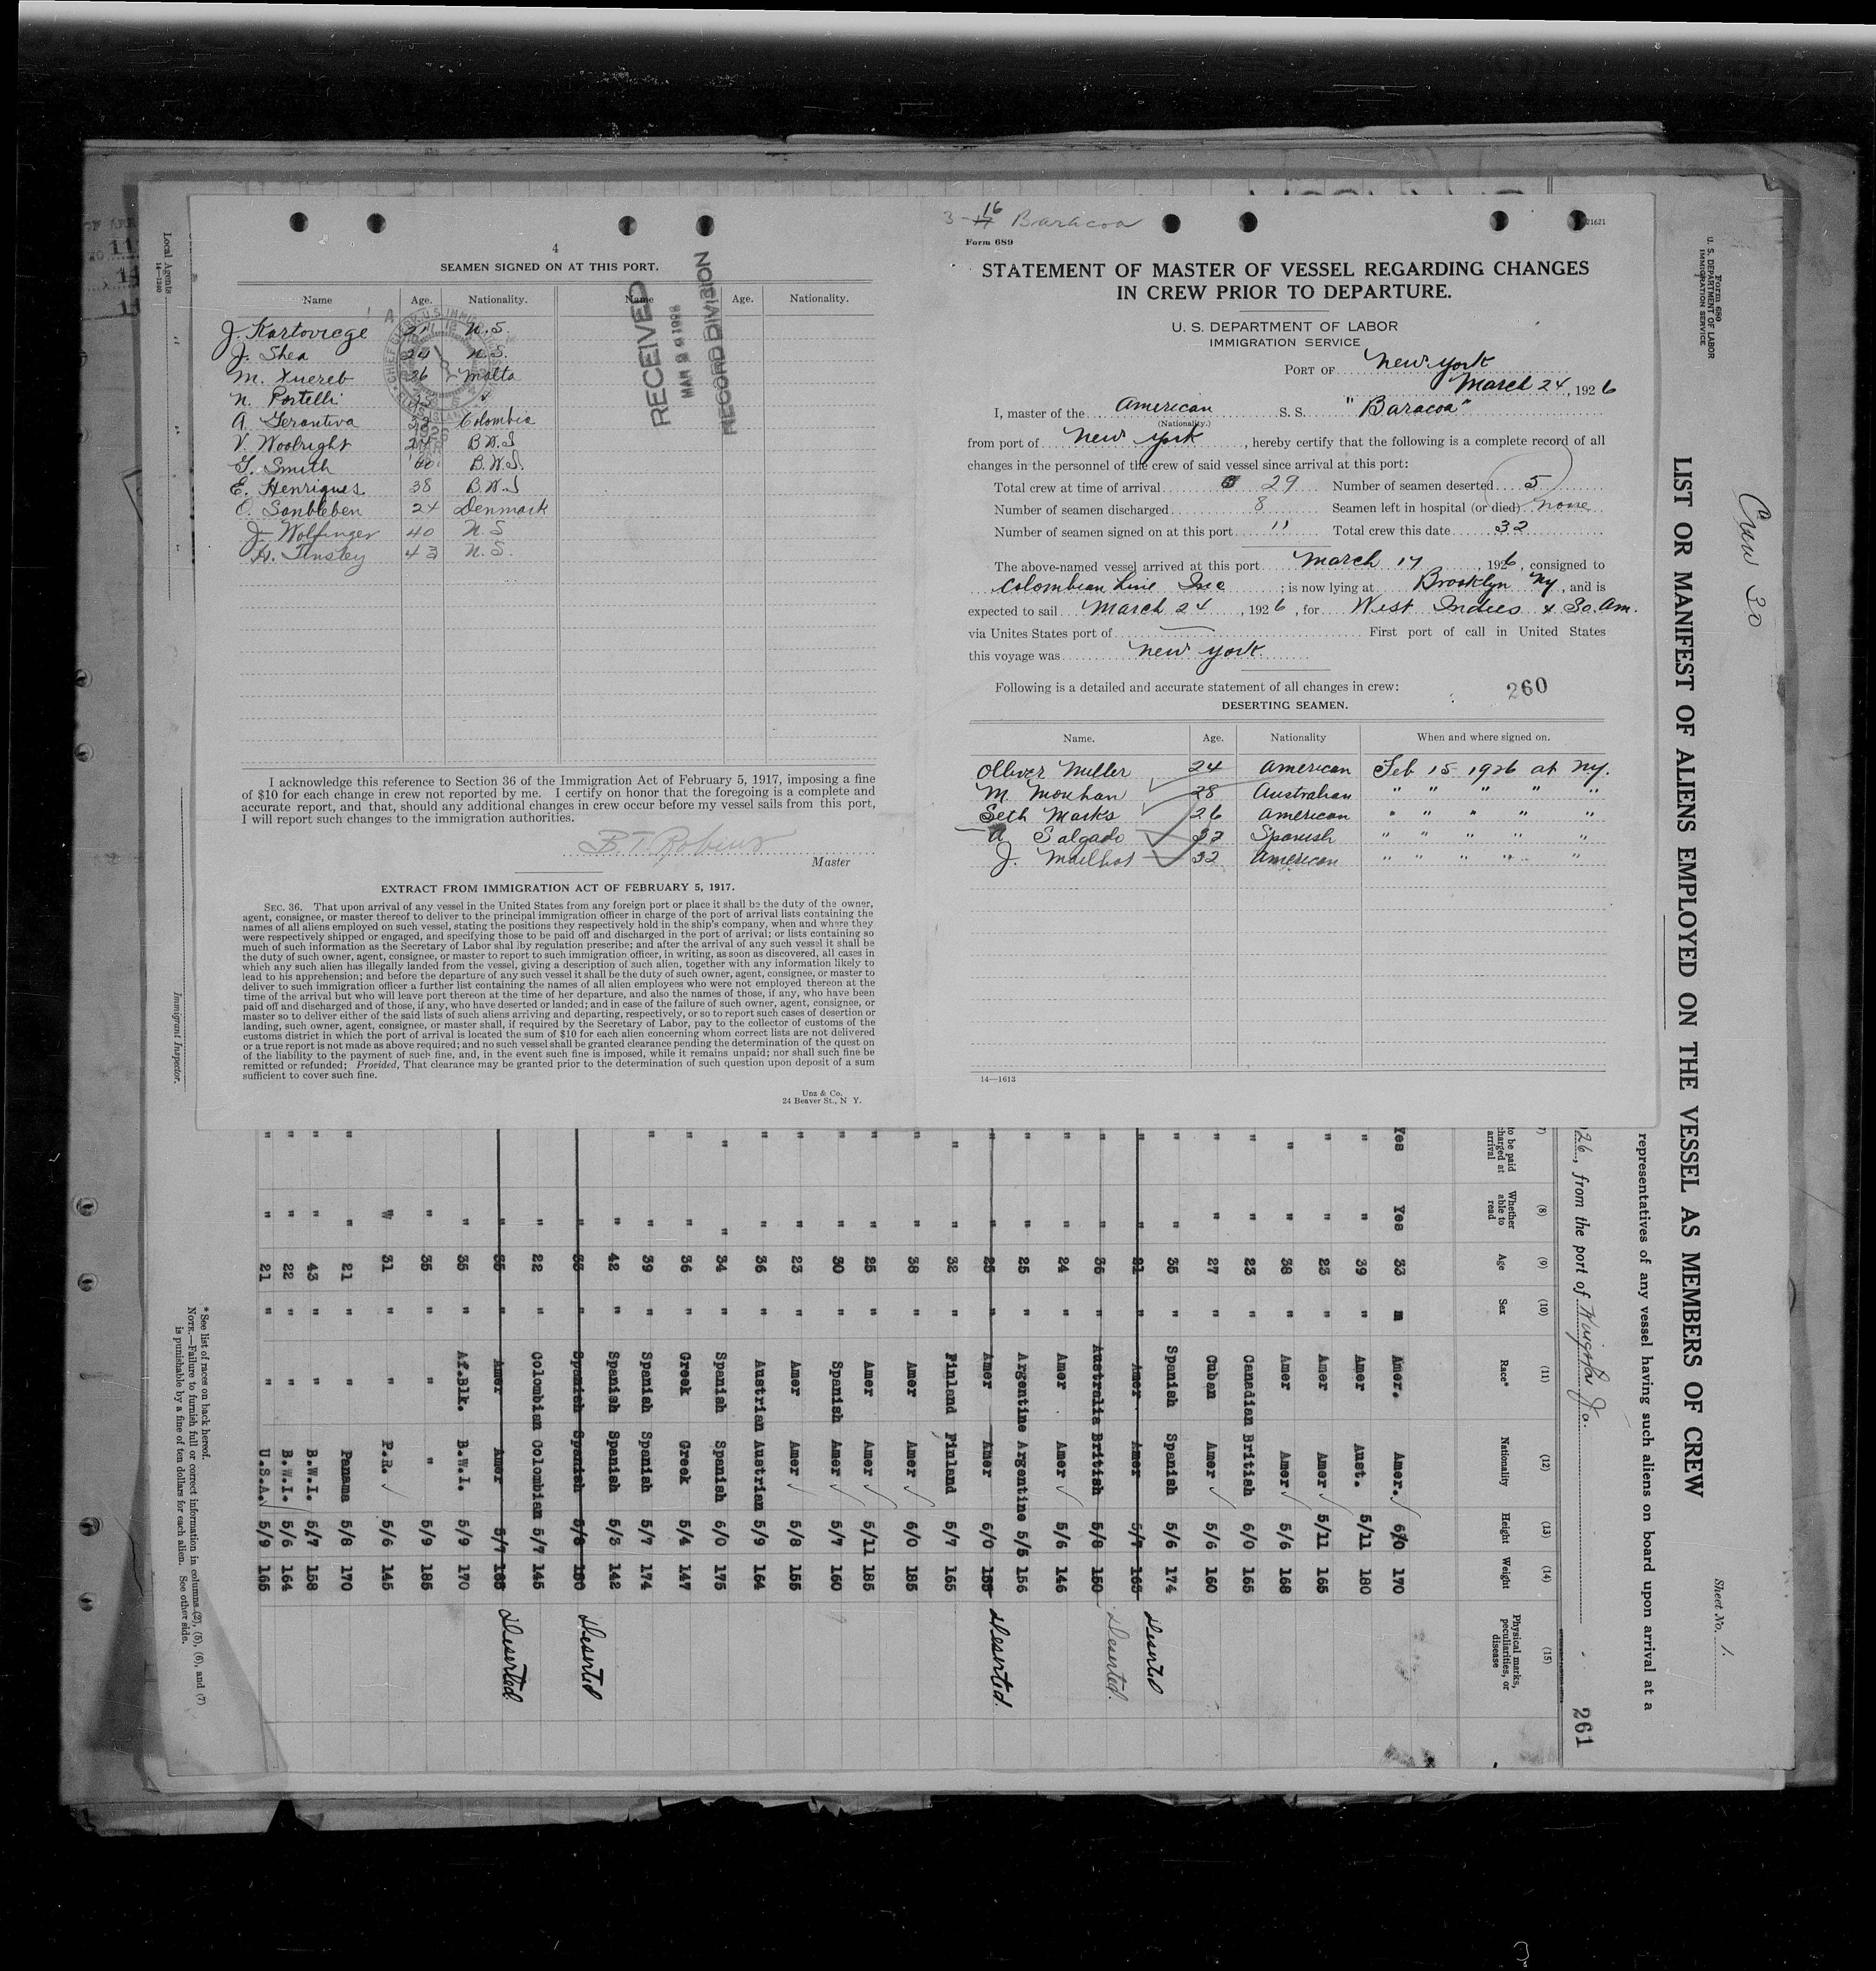 4
SEAMEN SIGNED ON AT THIS PORT.
Name Age. Nationality. Name Age. Nationality.
J. Kartovicge 21 U.S.
J. Shea 24 U.S.
M. Xuereb 26 Malta
N. Portelli "
A. Gerantiva Colombia
V. Woolright 24 B.W.I
G. Smith 40 B.W.I.
E. Henriques 38 B.W.I
O. Sonbleben 24 Denmark
J. Wolfinger 40 U.S
H. Tinsley 43 U.S.
RECEIVED
MAR 1926
RECORD DIVISION
I acknowledge this reference to Section 36 of the Immigration Act of February 5, 1917, imposing a fine
of $10 for each change in crew not reported by me. I certify on honor that the foregoing is a complete and
accurate report, and that, should any additional changes in crew occur before my vessel sails from this port,
I will report such changes to the immigration authorities.
B. T. Robins
Master
EXTRACT FROM IMMIGRATION ACT OF FEBRUARY 5, 1917.
SEC. 36. That upon arrival of any vessel in the United States from any foreign port or place it shall be the duty of the owner,
agent, consignee, or master thereof to deliver to the principal immigration officer in charge of the port of arrival lists containing the
names of all aliens employed on such vessel, stating the positions they respectively hold in the ship's company, when and where they
were respectively shipped or engaged, and specifying those to be paid off and discharged in the port of arrival; or lists containing so
much of such information as the Secretary of Labor shal lby regulation prescribe; and after the arrival of any such vessel it shall be
the duty of such owner, agent, consignee, or master to report to such immigration officer, in writing, as soon as discovered, all cases in
which any such alien has illegally landed from the vessel, giving a description of such alien, together with any information likely to
lead to his apprehension; and before the departure of any such vessel it shall be the duty of such owner, agent, consignee, or master to
deliver to such immigration officer a further list containing the names of all alien employees who were not employed thereon at the
time of the arrival but who will leave port thereon at the time of her departure, and also the names of those, if any, who have been
paid off and discharged and of those, if any, who have deserted or landed; and in case of the failure of such owner, agent, consignee, or
master so to deliver either of the said lists of such aliens arriving and departing, respectively, or so to report such cases of desertion or
landing, such owner, agent, consignee, or master shall, if required by the Secretary of Labor, pay to the collector of customs of the
customs district in which the port of arrival is located the sum of $10 for each alien concerning whom correct lists are not delivered
or a true report is not made as above required; and no such vessel shall be granted clearance pending the determination of the quest on
of the liability to the payment of such fine, and, in the event such fine is imposed, while it remains unpaid; nor shall such fine be
remitted or refunded; Provided, That clearance may be granted prior to the determination of such question upon deposit of a sum
sufficient to cover such fine.
Unz & Co.
24 Beaver St., N Y.
3-16 Baracoa
21621
Form 689
STATEMENT OF MASTER OF VESSEL REGARDING CHANGES
IN CREW PRIOR TO DEPARTURE.
U. S. DEPARTMENT OF LABOR
IMMIGRATION SERVICE
PORT OF New York
March 24, 1926
I, master of the American S. S. "Baracoa"
(Nationality.)
from port of New York, hereby certify that the following is a complete record of all
changes in the personnel of the crew of said vessel since arrival at this port:
Total crew at time of arrival 29 Number of seamen deserted 5
Number of seamen discharged 8 Seamen left in hospital (or died) none
Number of seamen signed on at this port 11 Total crew this date 32
The above-named vessel arrived at this port March 17, 1926, consigned to
Colombian Line Inc; is now lying at Brooklyn NY, and is
expected to sail March 24, 1926, for West Indies & So. Am.
via Unites States port of First port of call in United States
this voyage was New York.
Following is a detailed and accurate statement of all changes in crew: 260
DESERTING SEAMEN.
Name. Age. Nationality When and where signed on.
Olliver Miller 24 American Feb 15 1926 at NY.
M. Mouhan 28 Australian " " " " "
Seth Marks 26 American " " " " "
A Salgado 32 Spanish " " " " "
J. Mailhot 32 American " " " " "
14—1613
Crew 30
Form 689
U. S. DEPARTMENT OF LABOR
IMMIGRATION SERVICE
LIST OR MANIFEST OF ALIENS EMPLOYED ON THE VESSEL AS MEMBERS OF CREW
Sheet No. 1.
representatives of any vessel having such aliens on board upon arrival at a
26, from the port of Kingston Ja. 261
to be paid charged at arrival (8) Whether able to read (9) Age (10) Sex (11) Race* (12) Nationality (13) Height (14) Weight (15) Physical marks, peculiarities, or disease
Yes Yes 33 m Amer. Amer. 6/0 170
" " 39 " Amer Aust. 5/11 180
" " 23 " Amer Amer 5/11 165
" " 38 " Amer Amer 5/6 168
" " 23 " Canadian British 6/0 165
" " 27 " Cuban Amer 5/6 160
" " 35 " Spanish Spanish 5/6 174
" " 21 " Amer Amer 5/7 165 Deserted
" " 36 " Australia British 5/8 150 Deserted.
" " 24 " Amer Amer 5/6 146
" " 25 " Argentine Argentine 5/5 156
" " 25 " Amer Amer 6/0 Deserted.
" " 32 " Finland Finland 5/7 165
" " 38 " Amer Amer 6/0 185
" " 25 " Amer Amer 5/11 185
" " 30 " Spanish Amer 5/7 160
" " 23 " Amer Amer 5/8 155
" " 36 " Austrian Austrian 5/9 164
" " 34 " Spanish Spanish 6/0 175
" " 36 " Greek Greek 5/4 147
" " 39 " Spanish Spanish 5/7 174
" 42 " Spanish Spanish 5/3 142
" " Spanish Spanish Deserted
" 22 " Colombian Colombian 5/7 145
" " Amer Amer 5/7 Deserted
" 35 " Af.Blk. B.W.I. 5/9 170
" 35 " " " 5/9 185
W 31 " " P.R. 5/6 145
" " 21 " " Panama 5/8 170
" " 43 " " B.W.I. 5/7 158
" " 22 " " B.W.I. 5/6 164
" " 21 " " U.S.A. 5/9 165
* See list of races on back hereof.
NOTE.—Failure to furnish full or correct information in columns (2), (5), (6), and (7)
is punishable by a fine of ten dollars for each alien. See other side.
Local Agents
14—1240
Immigrant Inspector.
3